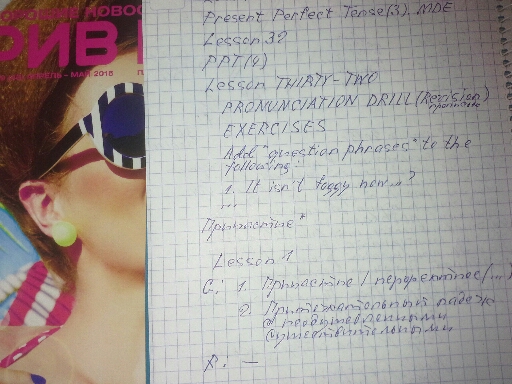 НОВОС
РИВ
АПРЕЛЬ - МАЙ 2015
Present Perfect Tense (3). MDE
Lesson 32
PPT(4)
Lesson THIRTY-TWO
PRONUNCIATION DRILL (Revision)
EXERCISES
Add "question phrases" to the
following:
1. It isn't foggy now...?
...
Причастие*
Lesson 1
G: 1. Причастие I перфектное (...)
2. Притяжательный падеж
с неодушевлёнными
существительными
R: —